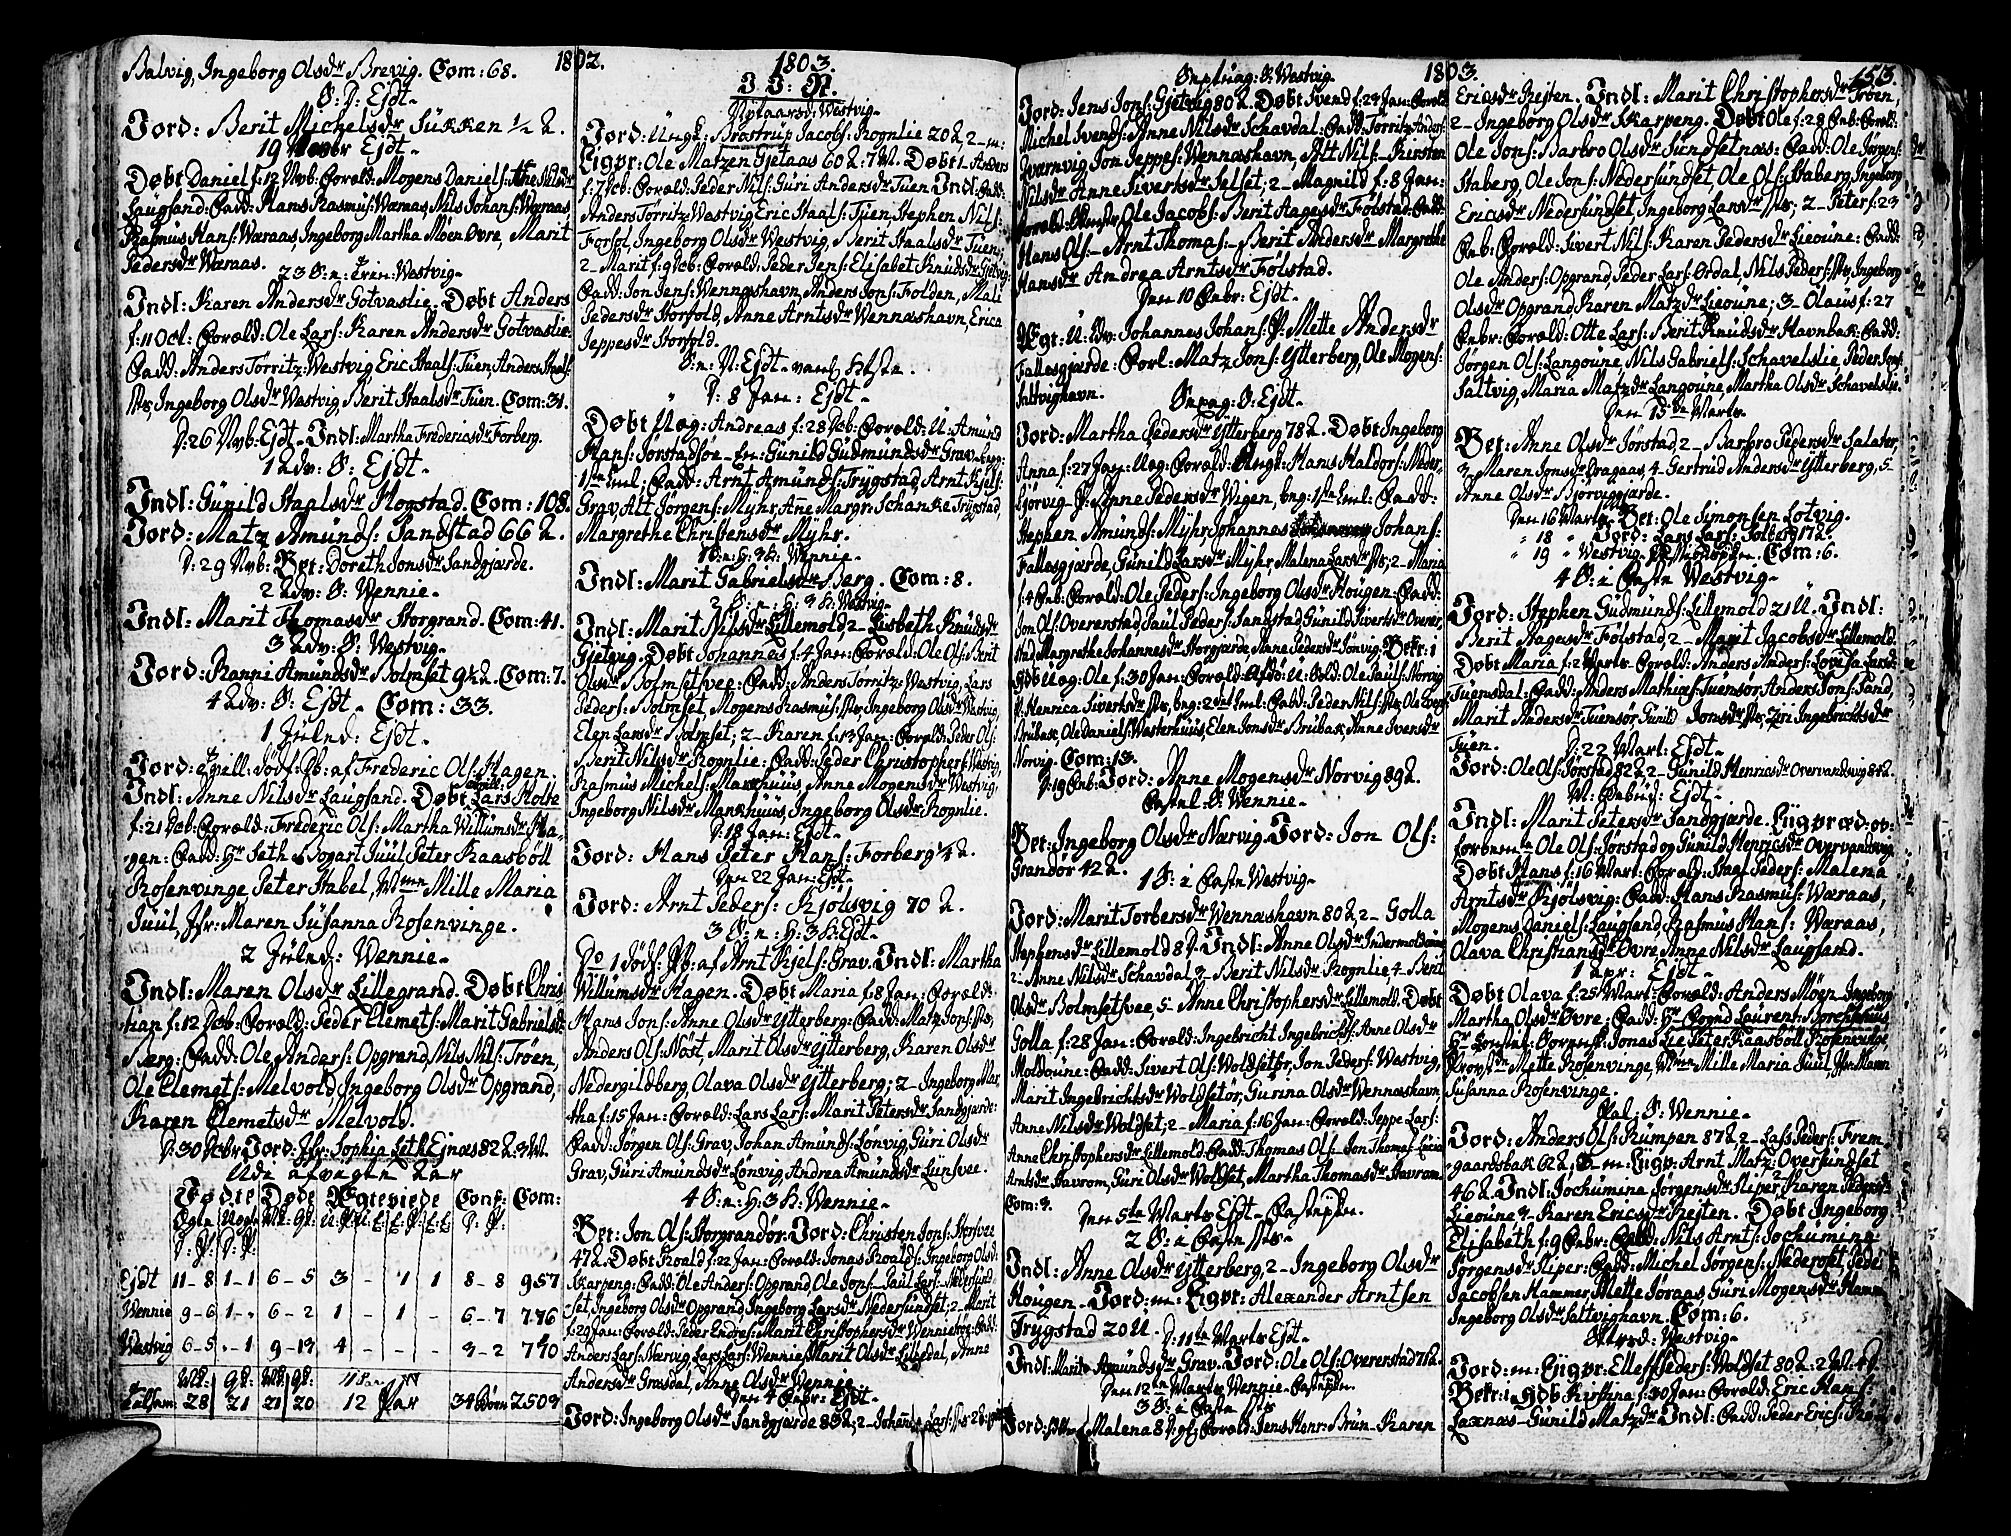 1802.
Balvig, Ingeborg Olsdr Brevig. Com: 68.
S: P: Ejdt-
Jord: Berit Michelsdr Sükken ½ 2.
19 Novbr Ejdt-
Døbt Daniel f: 12 Nvb: Foræld: Mogens Daniels: Ane Nilsdr
Laugsand: Fadd: Hans Rasmus: Wæraas, Nils Johans: Wæraas,
Rasmus Hans: Wæraas, Ingeborg Martha Moen Øvre, Marit
Pedersdr Wæraas.
23 S: n: Trin: Westvig-
Indl: Karen Andersdr Gotvaslie. Døbt Anders
f: 11 Oct: Foræld: Ole Lars: Karen Andersdr Gotvaslie
Fadd: Anders Törritz: Westvig Eric Haals: Tüen, Anders Haals:
Ingeborg Olsdr Westvig, Berit Haalsdr Tüen. Com: 31.
D: 26 Nvb: Ejdt- Indl: Martha Fredericsdr Forberg.
1 Adv: S: Ejdt-
Indl: Günild Haalsdr Hogstad. Com: 108.
Jord: Matz Amünds: Sandstad 66 2.
D: 29 Nvb: Bet: Doreth Jonsdr Sandgjærde.
2 Adv: S: Wennie-
Indl: Marit Thomasdr Storgrand. Com: 41.
3 Adv: S: Westvig-
Jord: Ranni Amündsdr Bolmset 9½ 2. Com: 7.
4 Adv: S: Ejdt- Com: 33.
1 Jülnd: Ejdt-
Jord: Tvill: dødf: Pb: af Frederic Ols: Hagen.
Indl: Anne Nilsdr Laugsand. Døbt Lars Holte
f: 21 Dcb: Foræld: Frederic Ols: Martha Willumsdr Ha-
gen: Fadd: Hr Seth Bogart Juül Peter Kaasböll
Rosenvinge, Peter Habel, Mille Maria
Juül, Jfr: Maren Susanna Rosenvinge.
2 Jülnd: Wennie-
Indl: Maren Olsdr Lillegrand. Døbt Chris
han f: 12 Dcb: Foræld: Peder Clemets: Marit Gabrielsdr
Bærg: Fadd: Ole Anders: Opgrand, Nils Nils: Trøen,
Ole Clemets: Melvold, Ingeborg Olsdr Opgrand,
Karen Clemetsdr Melvold.
D: 30 Dcbr Jord: Jfr: Sophia Seth Ejnas 82 2: 3 M.
Udi afvigte Aar
Fødte Døde Ægteviede Conf: Com:
Ejdt 11-8 1-1 6-5 3 - 1 1 8-8 957
Wennie 9-6 1-" 6-2 1 - 1 - 6-7 776
Westvig 6-5 "-1 9-13 4 - - - 3-2 770
28 21 21 20 12 Par 34 Børn 2503
1803.
J: J: N:
Nytaarsd: Westvig-
Jord: Ungk: Brostrüp Jacobs: Rognlie 20 2 2-m:
Liigpr: Ole Matzen Gjetaas 60 2: 7 M. Døbt 1- Anders
f: 7 Dcb: Foræld: Peder Nils: Güri Andersdr Tüen Indl: Fadd:
Anders Törritz: Westvig Eric Haals: Tüen, Stephen Nils:
Forfol, Ingeborg Olsdr Westvig, Berit Haalsdr Tüen,
2- Marit f: 9 Dcb: Foræld: Peder Jens: Elisabet Knüdsdr Gjelvig
Fadd: Jon Jens: Wennæshavn, Anders Jons: Folden, Mali
Pedersdr Storfold, Anne Arntsdr Wennæshavn, Erica
Jeppesdr Storfold.
S: n: N: Ejdt-
D: 8 Jan: Ejdt-
Døbt Uæg: Andreas f: 28 Dcb: Foræld: U: Amünd
Hans: Sørstadsøe- Günild Güdmündsdr Grav
Fadd: Arnt Amünds: Trygstad, Arnt Kjels:
Grav, Alt Jørgens: Myhr, Ane Margr: Schanke Trygstad,
Margrethe Christensdr Myhr.
1 S: n: H: 3 K: Wennie-
Indl: Marit Gabrielsdr Berg. Com: 8.
2 S: n: H: 3 K: Westvig-
Indl: Marit Nilsdr Lillemold, 2- Lisbeth Knüdsdr
Gjelvig. Døbt Johannes f: 4 Jan: Foræld: Ole Ols: Berit
Olsdr Bolmsetsvee: Fadd: Anders Torritz: Westvig, Lars
Peders: Bolmset, Mogens Rasmus: Ingeborg Olsdr Westvig,
Elen Larsdr Bolmset; 2- Karen f: 13 Jan: Foræld: Peder Ols:
Berit Nilsdr Rognlie: Fadd: Peder Christophers: Westvig,
Rasmus Michels: Markhuus, Anne Mogensdr Westvig,
Ingeborg Nilsdr Markhuus, Ingeborg Olsdr Rognlie.
D: 18 Jan: Ejdt-
Jord: Hans Peter Hans: Forberg ¼ 2.
Den 22 Jan: Ejdt-
Jord: Arnt Peders: Kjölsvig 70 2.
3 S: n: H: 3 K: Ejdt-
Do 1 dødf: Pb: af Arnt Kjels: Grav. Indl: Martha
Willumsdr Hagen. Døbt Maria f: 8 Jan: Foræld:
Hans Jons: Anne Olsdr Ytterberg: Fadd: Matz Jons:
Anders Ols: Nøst, Marit Olsdr Ytterberg, Karen Olsdr
Nedergildberg, Olava Olsdr Ytterberg; 2- Ingeborg Mar
tha f: 15 Jan: Foræld: Lars Lars: Marit Petersdr Sandgjærde:
Fadd: Jørgen Ols: Grav, Johan Amünds: Lönvig, Güri Olsdr
Grav, Güri Amündsdr Lönvig, Andrea Amündsdr Lünsvee.
4 S: n: H: 3 K: Wennie-
Bet: Jon Ols: Storgrandør. Jord: Christen Jons: Storsvee
47 2. Døbt Roald f: 22 Jan: Foræld: Jonas Roalds: Ingeborg Olsdr
Skarpeng: Fadd: Ole Anders: Opgrand, Ole Jons- Paul Lars- Nedersünd-
set, Ingeborg Olsdr Opgrand, Ingeborg Larsdr Nedersündset; 2- Marit
f: 29 Jan: Foræld: Peder Endres: Marit Christophersdr Wennie Fadd:
Anders Lars: Nærvig, Lars Lars: Wennie, Marit Olsdr Liledal, Anne
Andersdr Grøsdal, Anne Olsdr Wennie.
Den 4 Febr: Ejdt-
Jord: Ingeborg Olsdr Sandgjærde 83 2, 2- Johan
1803.
S: Westvig-
Jord: Jens Jons: Gjetvig 80 2. Døbt Svend f: 23 Jan: Foræld:
Michel Svends: Anne Nilsdr Schavdal: Fadd: Törritz Anders:
Qværnvig, Jon Jeppes: Wennæshavn, Alt Nils- Kirsten
Nilsdr Anne Siversdr Selset; 2- Magnild f: 8 Jan:
Foræld: Ole Jacobs: Berit Aagesdr Følstad: Fadd:
Hans Ols- Arnt Thomas- Berit Andersdr Margrethe
Hansdr Andrea Arntsdr Følstad.
Den 10 Febr: Ejdt-
Ægt: U: Johannes Johans: P: Mette Andersdr
Fallesgjærde: Forl: Matz Jons: Ytterberg, Ole Mogens:
Saltvighavn.
S: Ejdt-
Jord: Martha Pedersdr Ytterberg 78 2. Døbt Ingeborg
Anna f: 27 Jan: Uæg: Foræld: Ungk: Hans Haldors: Neder-
Sjörvig P: Anne Pedersdr Wigen, Fadd:
Stephen Amünds: Myhr, Johannes Johans:
Fallesgjærde, Günild Larsdr Myhr, Malena Larsdr; 2- Maria
f: 4 Feb: Foræld: Ole Peders: Ingeborg Olsdr Hougen: Fadd:
Jon Ols: Overenstad Paul Peders: Sandstad Günild Sivertsdr Overen-
stad, Margrethe Johannesdr Storgjærde, Anne Pedersdr Lönvig. Bekr: 1
Hdb Uæg: Ole f: 30 Jan: Foræld: U: Ole Pauls: Norvig
P: Henrica Sivertsdr, Fadd: Peder Nils:
Brübak, Ole Daniels: Westerhuus, Elen Jonsdr Brübak, Anne Svensdr
Norvig. Com: 13.
D: 19 Feb: Jord: Anne Mogensdr Norvig 89 2.
Fastel: S: Wennie-
Bet: Ingeborg Olsdr Nærvig. Jord: Jon Ols:
Grandør 42 2.
1 S: i Faste Westvig-
Jord: Marit Torbersdr Wennæshavn 80 2, 2- Golla
Stephensdr Lillemold 8 D. Indl: Anne Olsdr Indermoldøune
2- Anne Nilsdr Schavdal 3- Berit Nilsdr Rognlie 4- Berit
Olsdr Bolmsetsvee, 5- Anne Christophersdr Lillemold. Døbt
Golla f: 28 Jan: Foræld: Ingebricht Ingebrichts: Anne Olsdr
Moldøune: Fadd: Sivert Ols: Woldsetør, Jon Peders: Westvig,
Marit Ingebrichtsdr Woldsetør, Gurina Olsdr Wennæshavn
Anne Nilsdr Woldset; 2- Maria f: 16 Jan: Foræld: Jeppe Lars:
Anne Christophersdr Lillemold: Fadd: Thomas Ols- Jon Thomas- Lucia
Arntsdr Havrom, Güri Olsdr Woldset, Martha Thomasdr Havrom.
Com: 3.
Den 5te Marts Ejdt-
2 S: i Faste
Indl: Anne Olsdr Ytterberg, 2- Ingeborg Olsdr
Hougen- Jord: m: Liigpr: Alexander Arntsen
Trygstad 20 U. D: 11te Marts Ejdt-
Indl: Marit Amündsdr Grav. Jord: Ole Ols: Overenstad 71 2.
Den 12te Marts Wennie-
3 S: i Faste
Jord: Malena 8 D: gl: Foræld: Jens Henr: Brün- Karen
1803.
153.
Ericsdr Rejten. Indl: Marit Christophersdr Trøen,
2- Ingeborg Olsdr Skarpeng. Døbt Ole f: 28 Feb: Foræld:
Ole Jons: Barbro Olsdr Sundsetnæs: Fadd: Ole Jørgens:
Staberg, Ole Jons: Nedersündset Ole Ols: Staberg Ingeborg
Ericsdr Nedersündset, Ingeborg Larsdr; 2- Peter f: 23
Feb: Foræld: Sivert Nils: Karen Pedersdr Lieoüne: Fadd:
Ole Anders: Opgrand, Peder Lars: Ørdal, Nils Peders: Ingeborg
Olsdr Opgrand Karen Matzdr Lieoüne; 3- Olaus f: 27
Febr: Foræld: Otte Lars: Berit Knüdsdr Havnbak: Fadd:
Jørgen Ols: Langoune, Nils Gabriels: Schavelslie, Peder Jons:
Saltvig, Maria Matzdr Langoune, Martha Olsdr Schavelslie.
Den 15de Marts.
Bet: Anne Olsdr Sørstad, 2- Barbro Pedersdr Salater,
3- Maren Jonsdr Dragaas, 4- Gertrud Andersdr Ytterberg, 5-
Anne Olsdr Bjørviggjærde.
Den 16 Marts Bet: Ole Simonsen Lotvig.
" 18 " Jord: Lars Lars: Solberg 17 2.
" 19 " Westvig. Com: 6.
4 S: i Faste Westvig-
Jord: Stephen Güdmünds: Lillemold 21 U. Indl:
Berit Aagesdr Følstad, 2- Marit Jacobsdr Lillemold.
Døbt Maria f: 2 Marts. Foræld: Anders Anders: Lovisa Larsdr
Tüensdal: Fadd: Anders Mathias: Tüensør, Anders Jons: Sand,
Marit Andersdr Tüensør Günild Jonsdr, Ziri Ingebrichtsdr
Tüen.
D: 22 Mart: Ejdt-
Jord: Ole Ols: Sørstad 82 2 2- Günild Henricsdr Overvandsvig 84 2.
M: Bebüd: Ejdt-
Indl: Marit Petersdr Sandgjærde. Liigpræd: ov:
Ole Ols: Sørstad og Günild Henricsdr Overvandsvig
Døbt Hans f: 16 Mart: Foræld: Haagen Peders: Malena
Arntsdr Kjølsvig: Fadd: Hans Rasmus: Wæraas,
Mogens Daniels: Laugsand, Rasmus Hans: Wæraas,
Olava Christiansdr Øvre, Anne Nilsdr Laugsand.
1 Apr: Ejdt-
Døbt Olava f: 25 Mart: Foræld: Anders Möen Ingeborg
Martha Olsdr Øvre: Fadd: Hr Laurent: Borchenhuus
Jonas Lie, Peter Kaasböll Rosenvinge,
Mette Rosenvinge, Mille Maria Juül, Jfr: Maren
Susanna Rosenvinge.
Pal: S: Wennie-
Jord: Anders Ols: Rümpen 87 2 2- Lars Peders: Frem
gaardsbak 62 2, m: Liigpr: Arnt Matz: Oversündset
46 2. Indl: Jochumina Jørgensdr Riper, Karen Pedersdr
Lieoüne 3- Karen Ericsdr Rejten. Døbt Ingeborg
Elisabeth f: 9 Febr: Foræld: Nils Arnts: Jochumina
Jørgensdr Riper: Fadd: Michel Jørgens: Nederset, Peder
Jacobsen Hammer, Mette Joraas, Güri Mogensdr Hamm
Ingeborg Olsdr Saltvighavn. Com: 6.
Skirsd: Westvig-
Jord: m: Liigpr: Ellef Peders: Woldset 80 2, 2 M: 4 D.
Bekr: 1 Hdb: Kirstina f: 30 Jan: Foræld: Eric Hans:
Laxnæs- Günild Matzdr Indl: Fadd: Peder Erics: